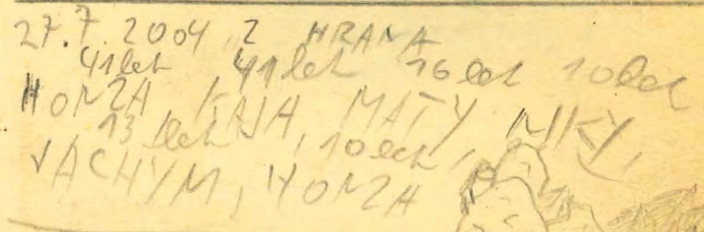 27.7.2004, Z HRANA
41 let 41 let 16 let 10 let
HONZA KÁJA, MATY, NIKY,
13 let, 10 let,
JÁCHYM, HONZA